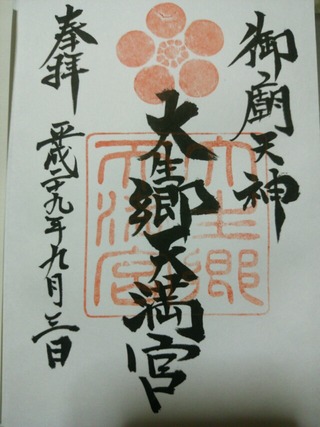 御廟天神
大生郷天満宮
奉拝
平成二十九年九月三日
大生郷
天満宮